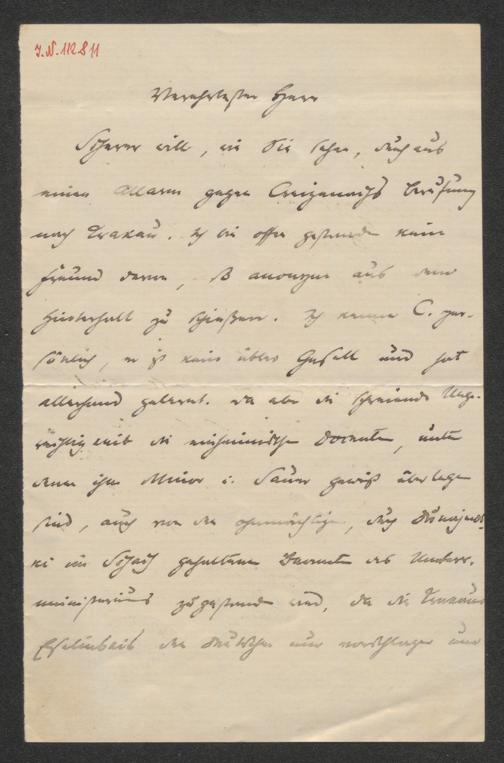 J.N. 112811
Verehrtester Herr
Scherer will, wie Sie sehen, durchaus
einen Allarm gegen Creizenachs Berufung
nach Krakau. Ich bin offen gestanden kein
Freund davon, so anonym aus dem
Hinterhalt zu schießen. Ich kenne C. per-
sönlich, er ist kein übler Gesell und hat
allerhand gelernt. Da aber die schreiende Unge-
rechtigkeit die einheimischen Docenten, unter
denen ihm Minor u. Sauer gewiß überlegen
sind, auch von den ohnmächtigen, durch
ki im Schach gehaltenen Beamten des Unterr.
ministeriums zugestanden wird, da die Krakauer
der Deutschen nur vorschlagen und